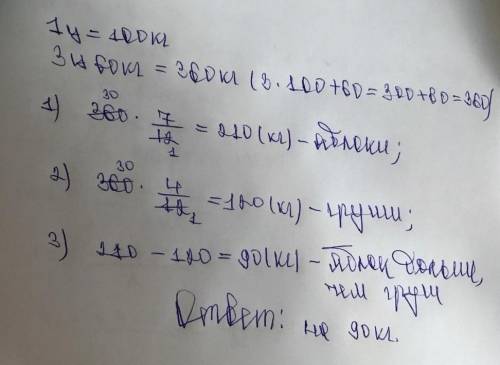 1ц = 100кг
3ц 60кг = 360кг (3·100+60=300+60=360)
1) 360 30 · 7/12 1 = 210(кг) – яблоки;
2) 360 30 · 4/12 1 = 120(кг) – груши;
3) 210 – 120 = 90(кг) – яблок больше,
чем груш
Ответ: на 90кг.